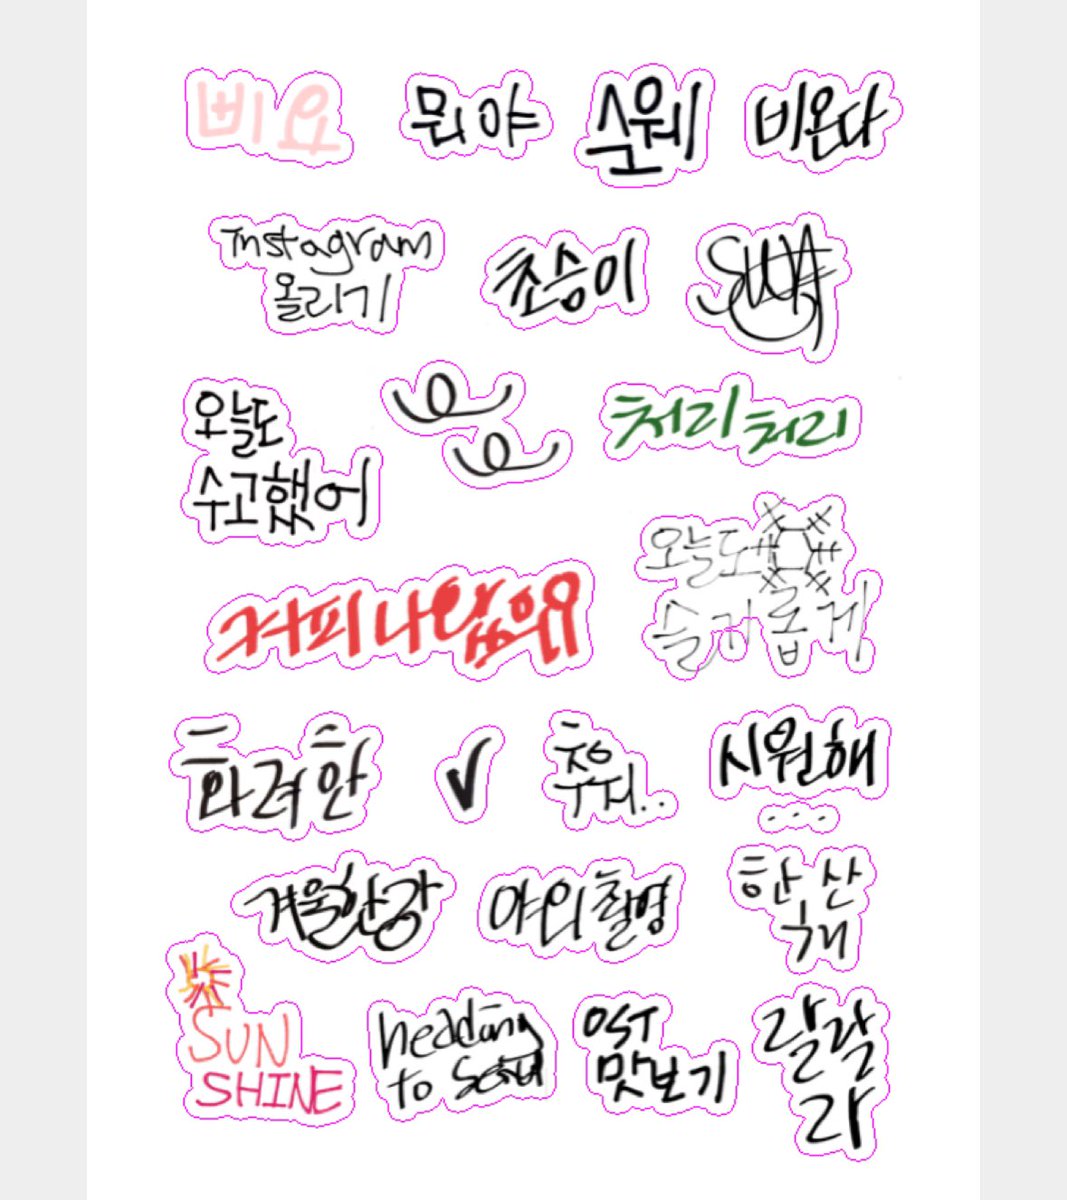 삐요
뭔 야
순웨
비온다
Instagram
올리기
초승이
오늘도
수고했어
처리처리
오늘도
슬기롭게
화려한
추워..
시원해
...
겨울한강
야외촬영
한 산
개
SUN
SHINE
heading
to Seoul
OST
맛보기
랄랄
라